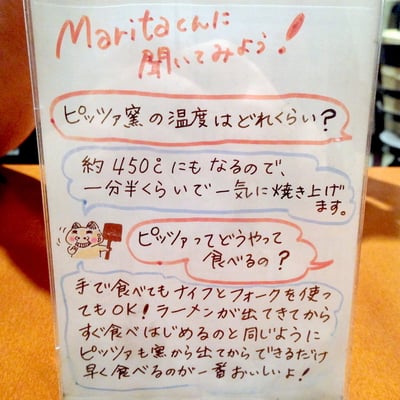 Maritaくんに
聞いてみよう!
ピッツァ窯の温度はどれくらい?
約450℃にもなるので、
一分半くらいで一気に焼き上げ
ます。
ピッツァってどうやって
食べるの?
手で食べてもナイフとフォークを使っ
てもOK!ラーメンが出てきてから
すぐ食べはじめるのと同じように
ピッツァも窯から出てからできるだけ
早く食べるのが一番おいしいよ!